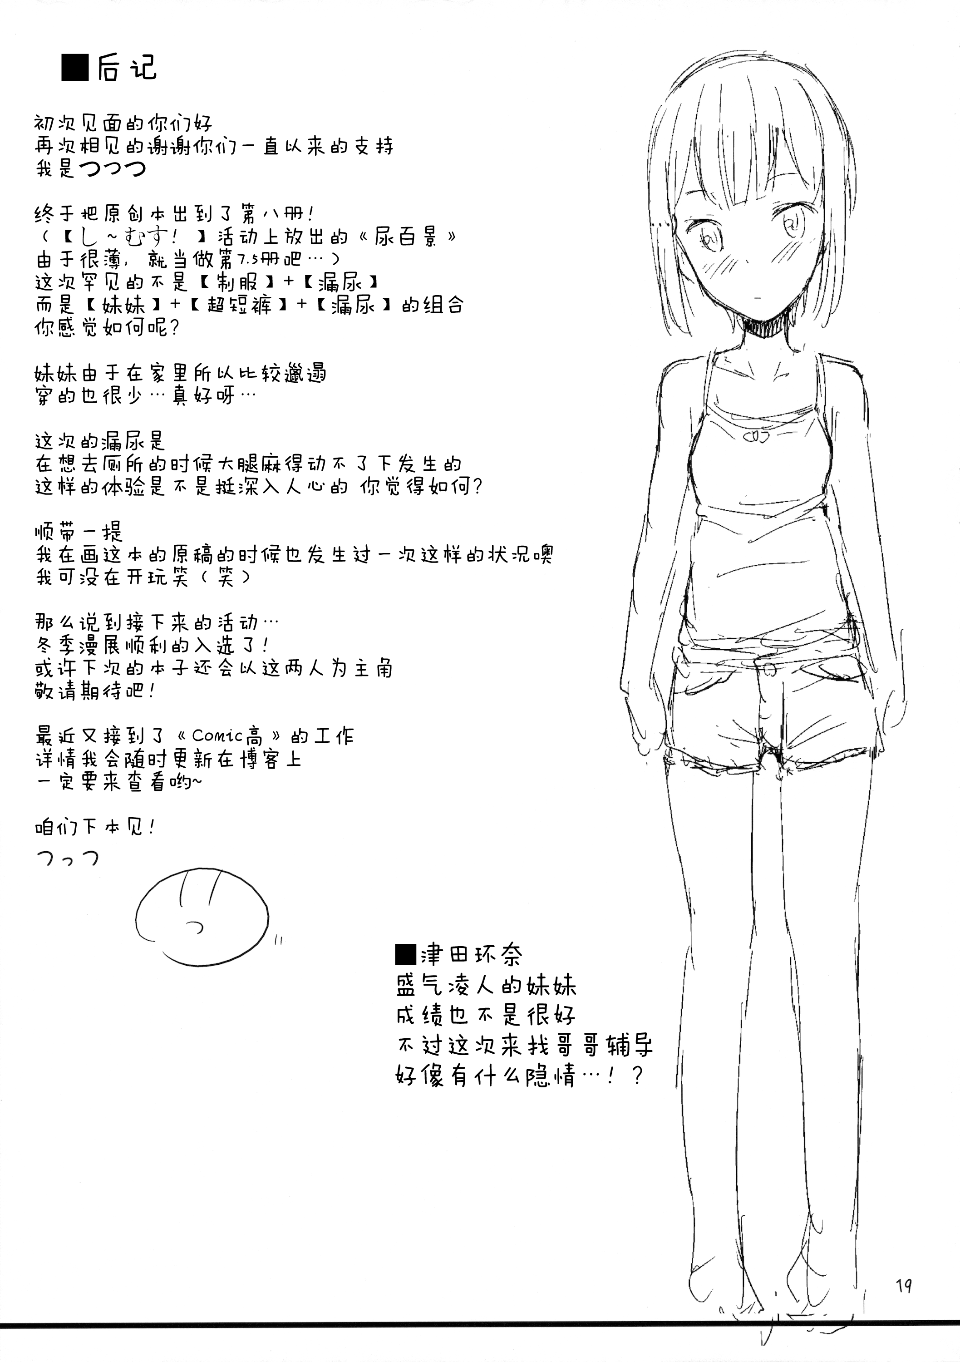 ■后记
初次见面的你们好
再次相见的谢谢你们一直以来的支持
我是つつつ
终于把原创本出到了第八册!
(【し~むす!】活动上放出的《尿百景》
由于很薄,就当做第7.5册吧…)
这次罕见的不是【制服】+【漏尿】
而是【妹妹】+【超短裤】+【漏尿】的组合
你感觉如何呢?
妹妹由于在家里所以比较邋遢
穿的也很少…真好呀…
这次的漏尿是
在想去厕所的时候大腿麻得动不了下发生的
这样的体验是不是挺深入人心的 你觉得如何?
顺带一提
我在画这本的原稿的时候也发生过一次这样的状况噢
我可没在开玩笑(笑)
那么说到接下来的活动…
冬季漫展顺利的入选了!
或许下次的本子还会以这两人为主角
敬请期待吧!
最近又接到了《Comic高》的工作
详情我会随时更新在博客上
一定要来查看哟~
咱们下本见!
つっつ
■津田环奈
盛气凌人的妹妹
成绩也不是很好
不过这次来找哥哥辅导
好像有什么隐情…!?
19